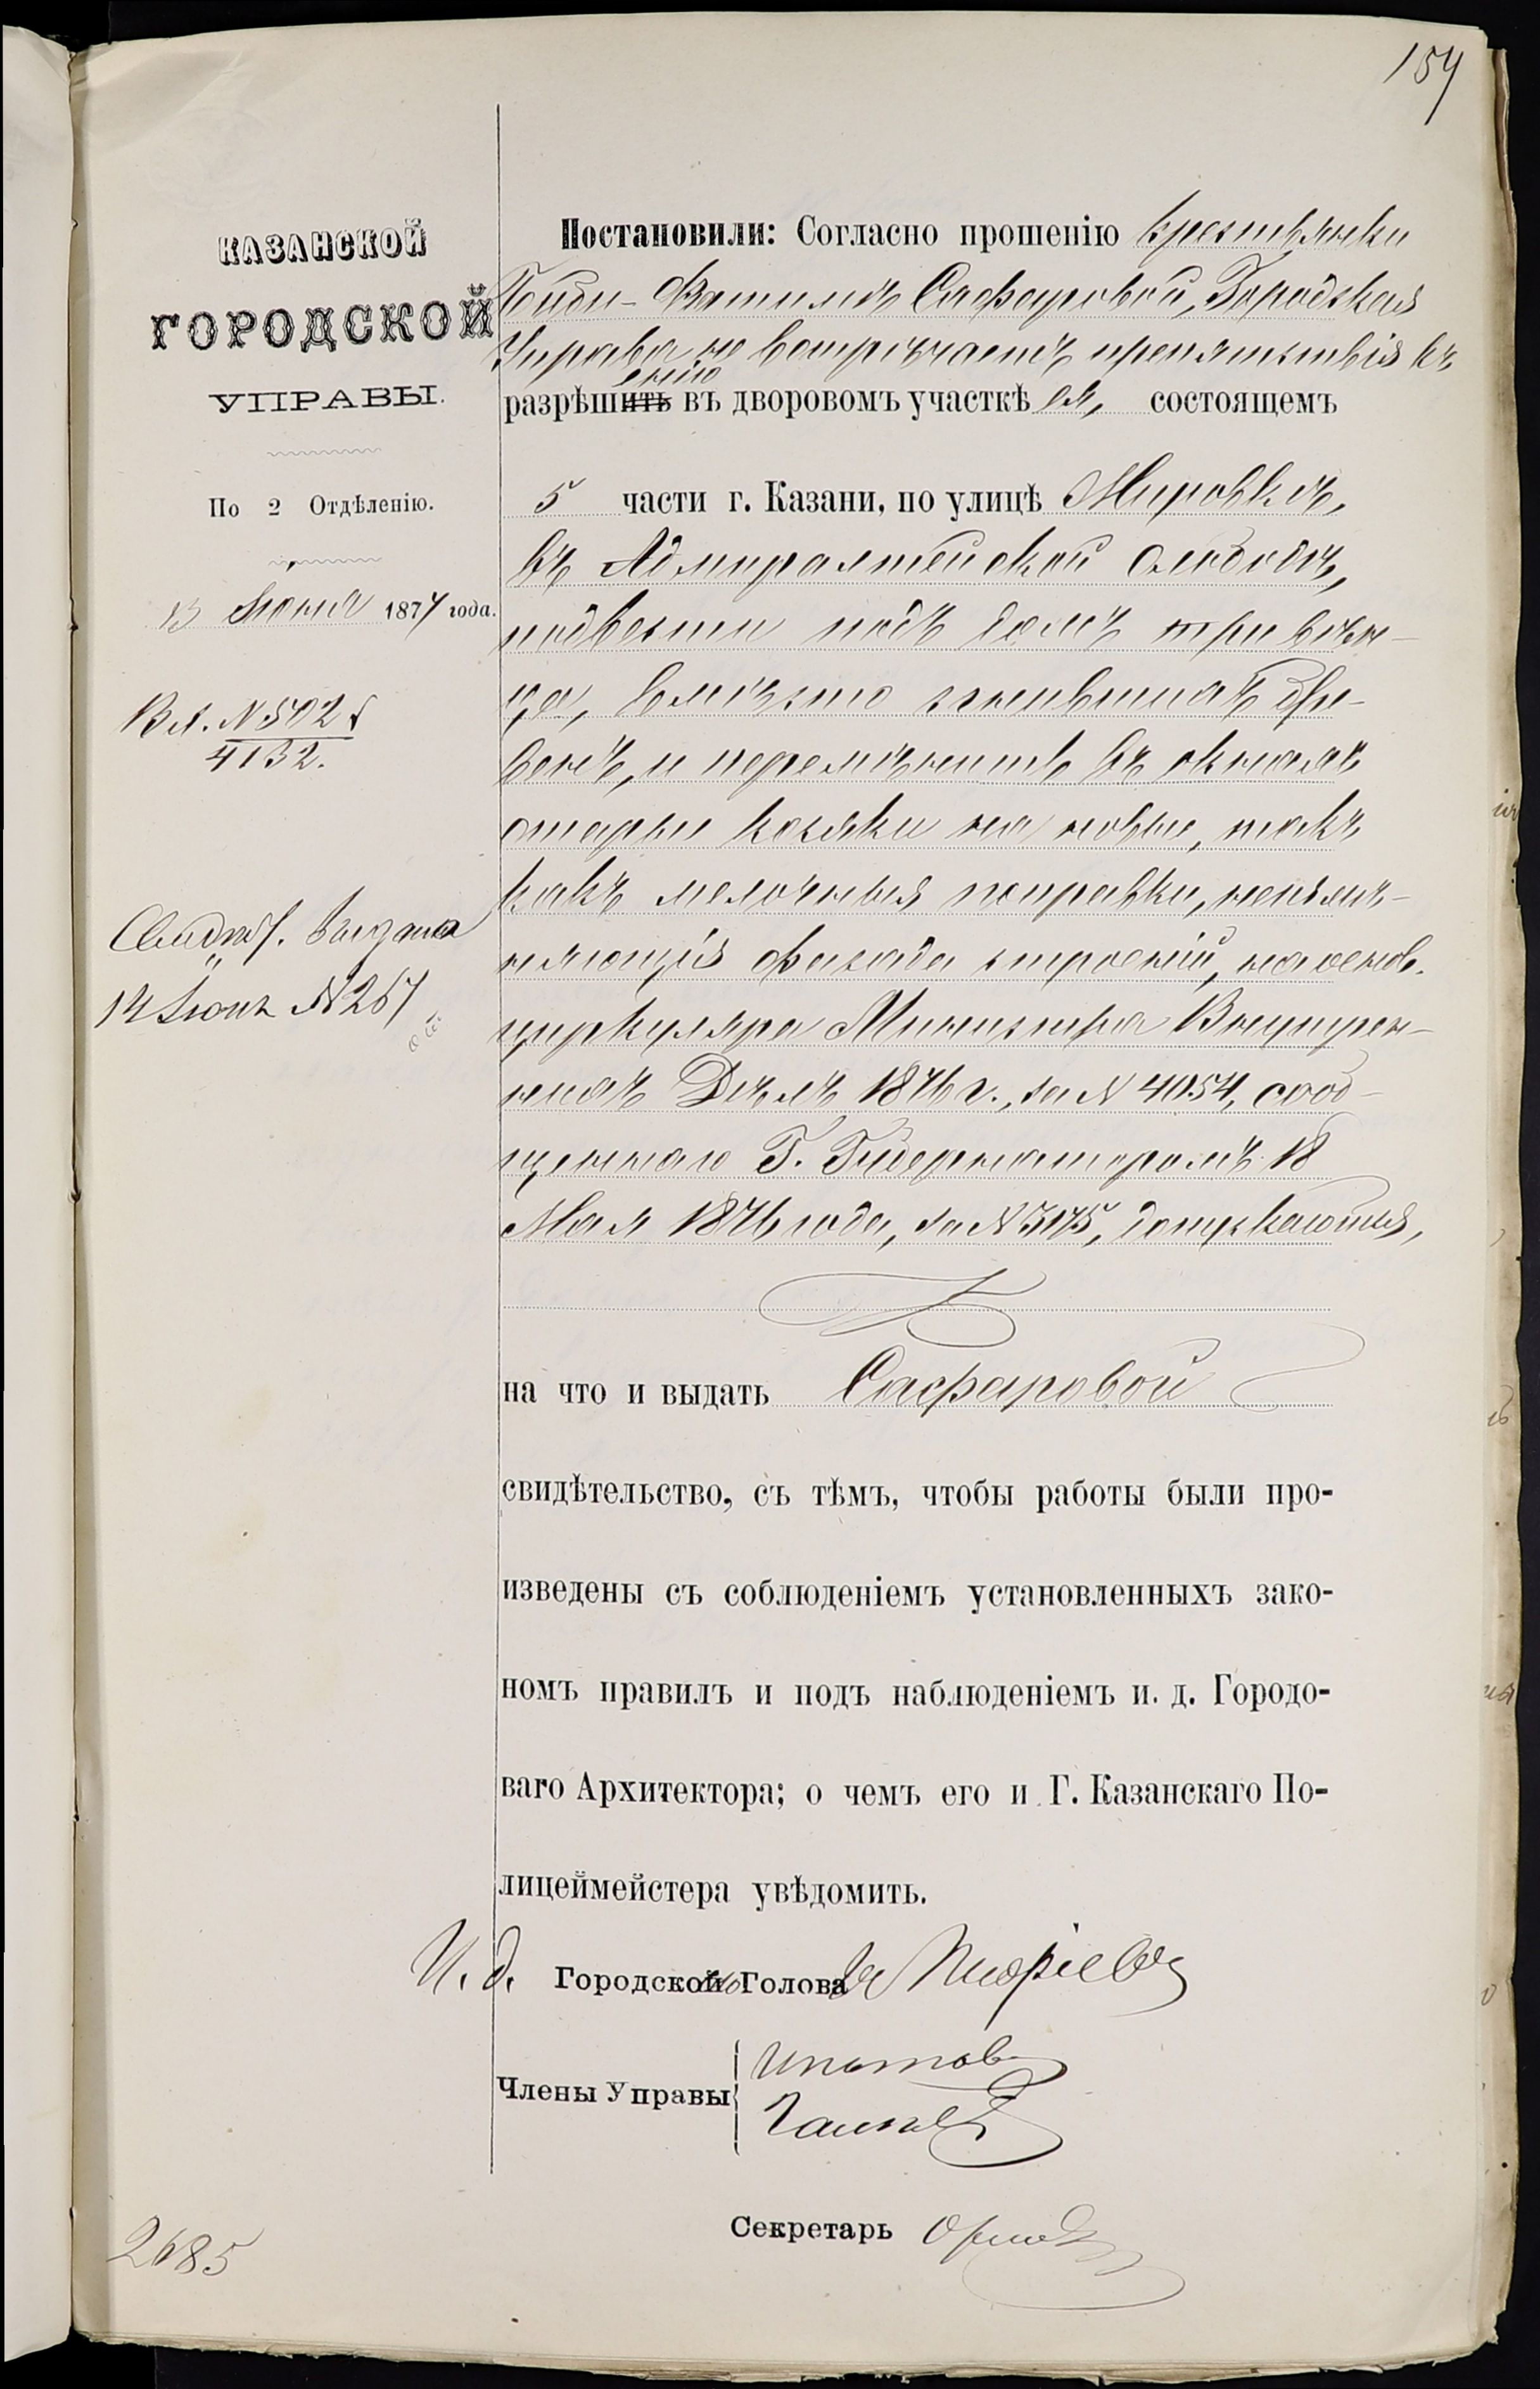 154
КАЗАНСКОЙ
ГОРОДСКОЙ
УПРАВЫ.
По 2 Отдѣленію.
13 Іюня 1877 года.
Вх. № 5025
4132.
Свидѣт. выдано
14 Іюня № 267
Постановили: Согласно прошенію крестьянки
Биби-Фатимы Сафаровой, Городская
Управа не встрѣчаетъ препятствія къ
разрѣшить енію въ дворовомъ участкѣ ея, состоящемъ
5 части г. Казани, по улицѣ
въ Адмиралтейской слободѣ,
подвести подъ домъ три вѣн-
ца, вмѣсто сгнившихъ бре-
венъ, и перемѣнить въ окнахъ
старые косяки на новые, такъ
какъ мелочныя поправки, неизмѣ-
няющія фасада строеній, на основ.
циркуляра Министра Внутрен-
нихъ Дѣлъ 1876 г., за № 4054, сооб-
щеннаго Г. Губернаторомъ 18
Мая 1876 года, за № 3175, допускаются,
на что и выдать Сафаровой
свидѣтельство, съ тѣмъ, чтобы работы были про-
изведены съ соблюденіемъ установленныхъ зако-
номъ правилъ и подъ наблюденіемъ и. д. Городо-
ваго Архитектора; о чемъ его и Г. Казанскаго По-
лицеймейстера увѣдомить.
И. д. Городской Голова
Члены Управы Ипатовъ
Секретарь Орловъ
2685